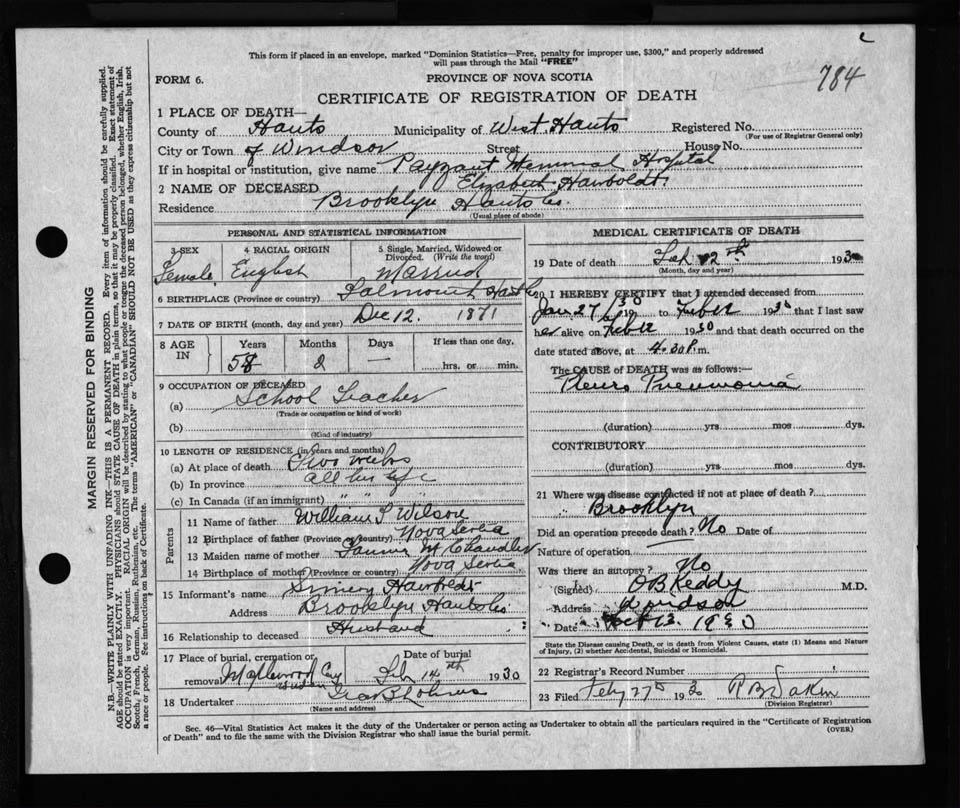 This form if placed in an envelope, marked "Dominion Statistics—Free, penalty for improper use, $300," and properly addressed
will pass through the Mail "FREE"
784
FORM 6.
PROVINCE OF NOVA SCOTIA
CERTIFICATE OF REGISTRATION OF DEATH
1 PLACE OF DEATH—
County of Hants Municipality of West Hants Registered No.
(For use of Registrar General only)
City or Town of Windsor Street House No.
If in hospital or institution, give name Payzant Memorial Hospital
2 NAME OF DECEASED Elizabeth Hawboldt
Residence Brooklyn Hants Co.
(Usual place of abode)
PERSONAL AND STATISTICAL INFORMATION
3 SEX Female
4 RACIAL ORIGIN English
5 Single, Married, Widowed or Divorced. (Write the word) Married
6 BIRTHPLACE (Province or country) Falmouth Hants
7 DATE OF BIRTH (month, day and year) Dec 12. 1871
8 AGE IN Years 58 Months 2 Days —
If less than one day, hrs. or min.
9 OCCUPATION OF DECEASED
(a) School Teacher
(Trade or occupation or kind of work)
(b)
(Kind of industry)
10 LENGTH OF RESIDENCE (in years and months)
(a) At place of death Two weeks
(b) In province all her life
(c) In Canada (if an immigrant) " " "
Parents
11 Name of father William S Wilson
12 Birthplace of father (Province or country) Nova Scotia
13 Maiden name of mother Fannie M Chandler
14 Birthplace of mother (Province or country) Nova Scotia
15 Informant's name Hawboldt
Address Brooklyn Hants Co
16 Relationship to deceased Husband
17 Place of burial, cremation or removal Maplewood Cem Windsor
Date of burial Feb 14th 1930
18 Undertaker
(Name and address)
MEDICAL CERTIFICATE OF DEATH
19 Date of death Feb 12th 1930
(Month, day and year)
20 I HEREBY CERTIFY that I attended deceased from
Jan 27/30 19 to Feb 12 1930 that I last saw
her alive on Feb 12 1930 and that death occurred on the
date stated above, at 4.30 P.m.
The CAUSE OF DEATH was as follows:—
Pleuro Pneumonia
(duration) yrs mos dys.
CONTRIBUTORY
(duration) yrs. mos. dys.
21 Where was disease contracted if not at place of death?
Brooklyn
Did an operation precede death? No Date of
Nature of operation
Was there an autopsy? No
(Signed) O B Keddy M.D.
Address Windsor
Date 13. 1930
State the Disease causing Death, or in death from Violent Causes, state (1) Means and Nature of Injury, (2) whether Accidental, Suicidal or Homicidal.
22 Registrar's Record Number
23 Filed Feby 27th 1930
(Division Registrar)
Sec. 46—Vital Statistics Act makes it the duty of the Undertaker or person acting as Undertaker to obtain all the particulars required in the "Certificate of Registration
of Death" and to file the same with the Division Registrar who shall issue the burial permit.
(OVER)
MARGIN RESERVED FOR BINDING
N.B.—WRITE PLAINLY WITH UNFADING INK—THIS IS A PERMANENT RECORD. Every item of information should be carefully supplied.
AGE should be stated EXACTLY. PHYSICIANS should STATE CAUSE OF DEATH in plain terms, so that it may be properly classified. Exact statement of
OCCUPATION is very important. RACIAL ORIGIN will be described by stating to what people or tongue the deceased person belonged, whether English, Irish,
Scotch, French, German, Russian, Ruthenian, etc. The terms "AMERICAN" or "CANADIAN" SHOULD NOT BE USED as they express citizenship but not
a race or people. See instructions on back of Certificate.